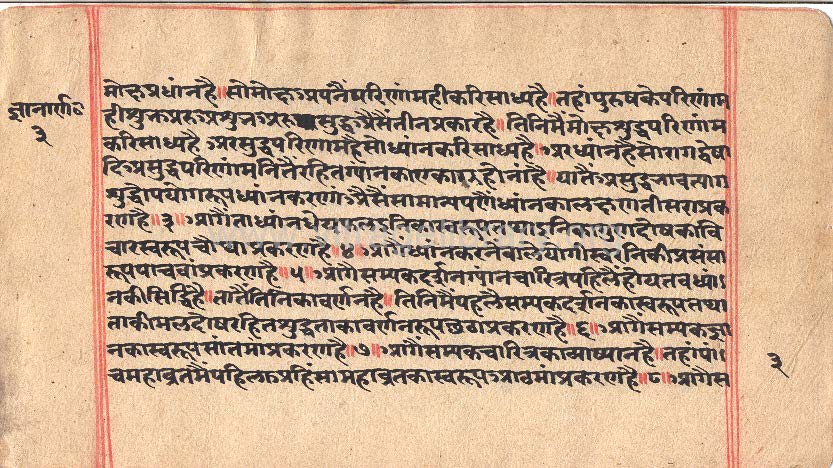 मोक्षप्रधांनहै॥सोमोक्षअपनैंपरिणांमहीकरिसाध्यहै॥तहांपुरुषकेपरिणांम
ज्ञानार्ण॰
३
हीशुभअरुअशुभअरु सुद्धअैसैंतीनप्रकारहै॥तिनिमैंमोक्षशुद्धपरिणांम
करिसाध्यहै अरसुद्धपरिणांमहैसोध्यांनकरिसाध्यहै॥अरध्यांनहैसोरागद्वेषा
दिअसुद्धपरिणांमनितैंरहितग्यानकाएकाग्रहोनांहै॥यातैंअसुद्धताकात्याग
शुद्धोपयोगरूपध्यांनकरणां अैसैंसांमान्यपणैंध्यांनकालक्षणतीसराप्रक
रणहै॥३॥आगैंताध्यांनध्येय
चारस्वरूपचौथाप्रकरणहै॥४॥आगैंध्यांनकरनेवालेयोगीस्वरनिकीप्रसंसा
रूपपांचवांप्रकरणहै॥५॥आगैसम्यकदर्शनग्यांनचारित्रपहिलैंहोयतबध्यां
नकीसिद्धिहै॥तातैंतिनिकावर्णनहै॥तिनिमैंपहलैसम्यकदर्शनकास्वरूपतथा
ताकीमलदोषरहितशुद्धताकावर्णनरूपछठाप्रकरणहै॥६॥आगैंसम्यकज्ञा
नकास्वरूपसांतमांप्रकरणहै॥७॥आगैंसम्यकचारित्रकाव्याख्यानहै॥तहांपां
३
चमहाव्रतमैंपहिलाअहिंसामहाव्रतकास्वरूपआठमांप्रकरणहै॥८॥आगैंस